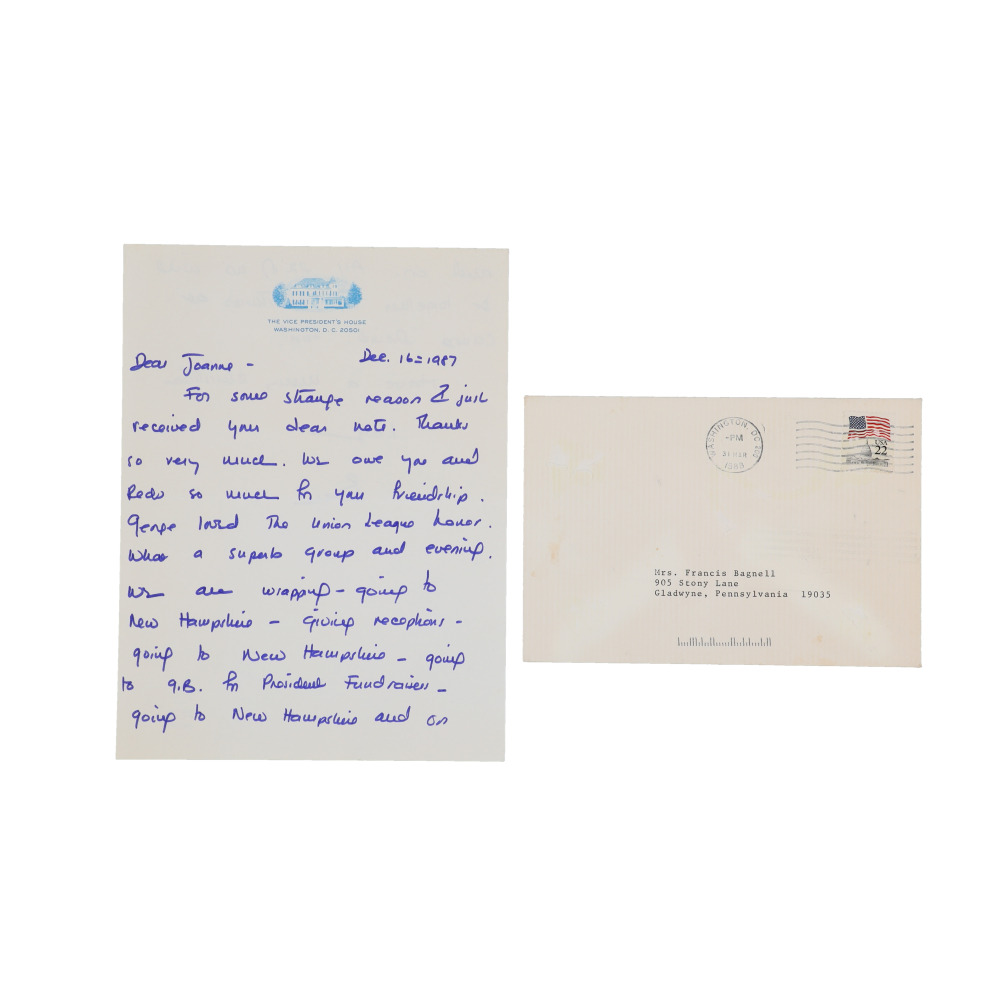 THE VICE PRESIDENT'S HOUSE
WASHINGTON, D. C. 20501
Dear Joanne - Dec. 16=1987
For some strange reason I just
received your dear note. Thanks
so very much. We owe you and
so much for your friendship.
George loved The Union League honor.
What a superb group and evening.
We are wrapping - going to
New Hampshire - Giving receptions -
going to New Hampshire - going
to G.B. for President Fundraisers -
going to New Hampshire and on
WASHINGTON, DC
PM
21 MAR
1988
USA
22
Mrs. Francis Bagnell
905 Stony Lane
Gladwyne, Pennsylvania 19035